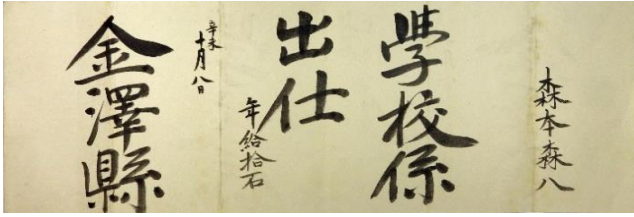 森本森八
學校係
出仕
年給拾石
辛未
十月八日
金澤縣